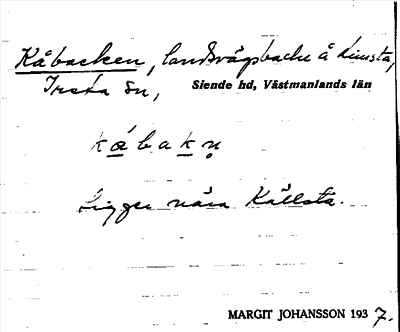 Kåbacken, landsvägsbacke å Limsta,
Irsta sn, Siende hd, Västmanlands län
kǻbakn̥
Ligger nära Källsta.
MARGIT JOHANSSON 1937.